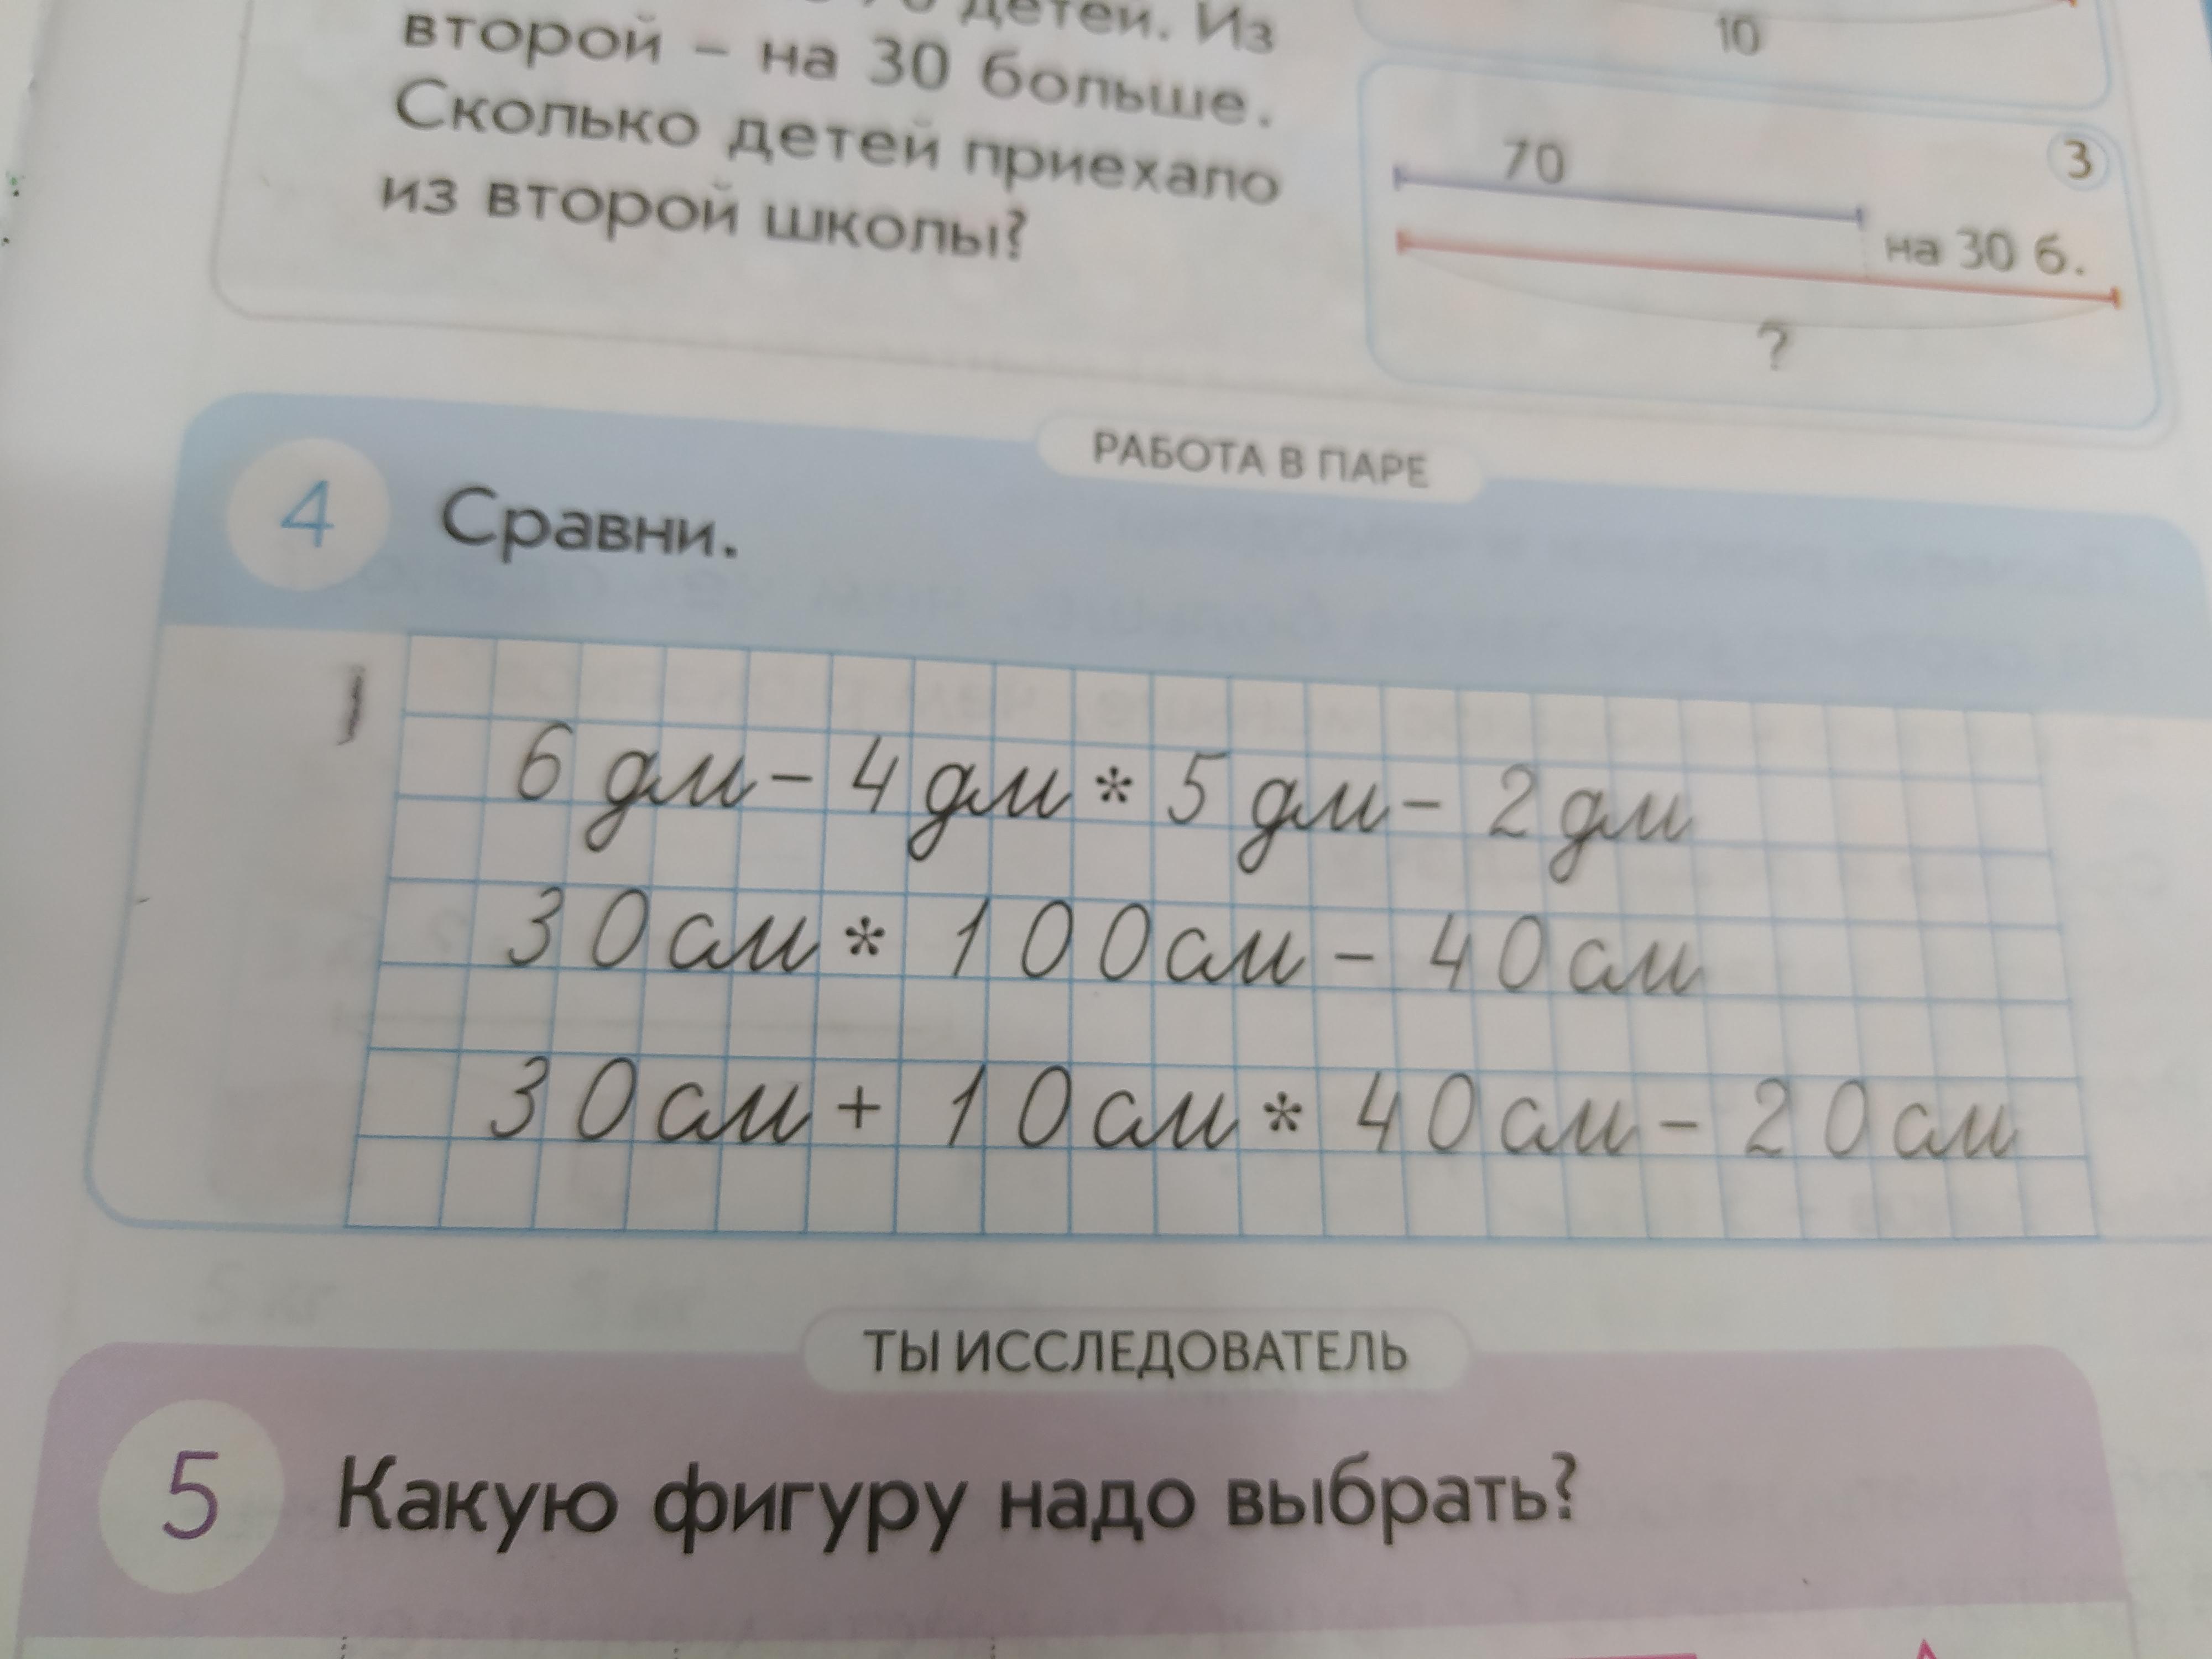 детей. Из
второй – на 30 больше.
Сколько детей приехало
из второй школы?
10
3
70
на 30 б.
?
РАБОТА В ПАРЕ
4 Сравни.
6 дм – 4 дм * 5 дм – 2 дм
30 см * 100 см – 40 см
30 см + 10 см * 40 см – 20 см
ТЫ ИССЛЕДОВАТЕЛЬ
5 Какую фигуру надо выбрать?